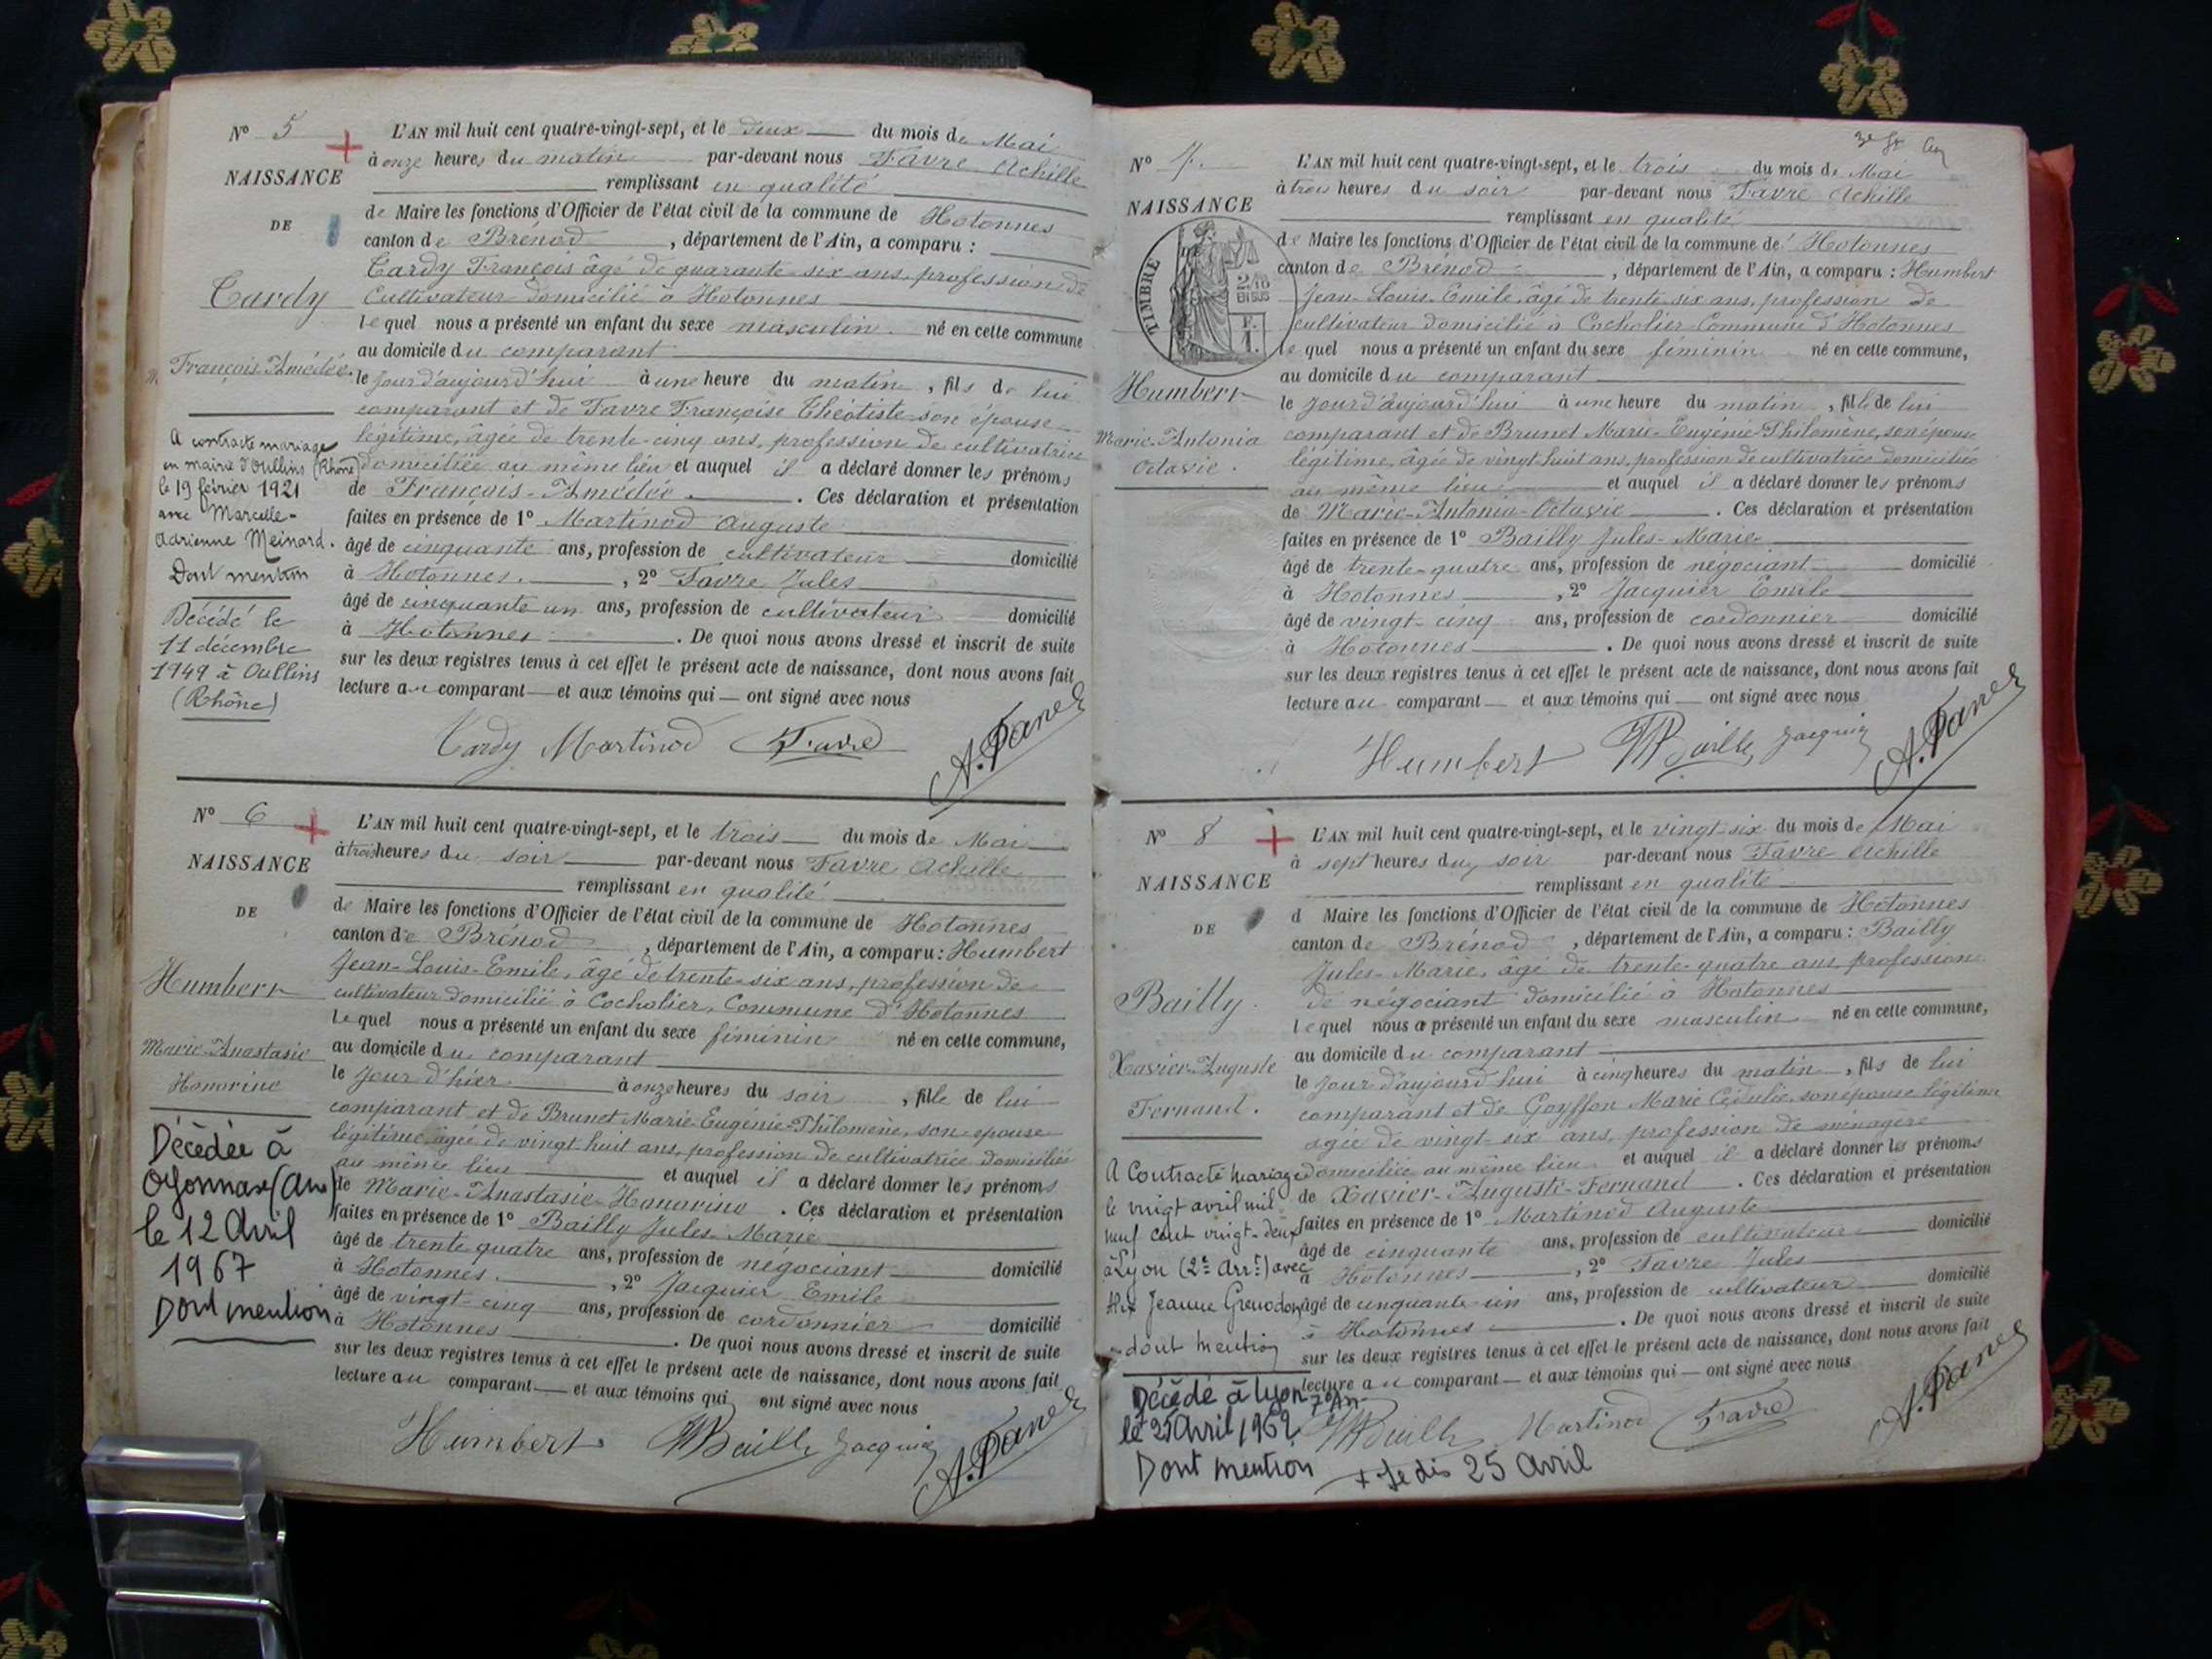 N° 5
NAISSANCE
DE
Tardy
François-Amédée.
A contracté mariage
en mairie d'Oullins (Rhône)
le 19 février 1921
avec Marcelle-
Adrienne Meinard.
Dont mention
Décédé le
11 décembre
1949 à Oullins
(Rhône)
L'AN mil huit cent quatre-vingt-sept, et le deux du mois de Mai
à onze heures du matin par-devant nous Favre Achille
remplissant en qualité
de Maire les fonctions d'Officier de l'état civil de la commune de Hotonnes
canton de Brénod, département de l'Ain, a comparu :
Tardy François âgé de quarante-six ans, profession de
Cultivateur domicilié à Hotonnes
lequel nous a présenté un enfant du sexe masculin né en cette commune
au domicile du comparant
le jour d'aujourd'hui à une heure du matin, fils de lui
comparant et de Favre Françoise Théotiste son épouse
légitime, âgée de trente-cinq ans, profession de cultivatrice
domiciliée au même lieu et auquel il a déclaré donner les prénoms
de François-Amédée. Ces déclaration et présentation
faites en présence de 1° Martinod Auguste
âgé de cinquante ans, profession de cultivateur domicilié
à Hotonnes, 2° Favre Jules
âgé de cinquante un ans, profession de cultivateur domicilié
à Hotonnes. De quoi nous avons dressé et inscrit de suite
sur les deux registres tenus à cet effet le présent acte de naissance, dont nous avons fait
lecture au comparant et aux témoins qui ont signé avec nous
Tardy Martinod Favre A. Favre
N° 6
NAISSANCE
DE
Humbert
Marie-Anastasie
Honorine
Décédée à
Oyonnax (Ain)
le 12 Avril
1967
Dont mention
L'AN mil huit cent quatre-vingt-sept, et le trois du mois de Mai
à trois heures du soir par-devant nous Favre Achille
remplissant en qualité
de Maire les fonctions d'Officier de l'état civil de la commune de Hotonnes
canton de Brénod, département de l'Ain, a comparu : Humbert
Jean-Louis-Emile, âgé de trente-six ans, profession de
cultivateur domicilié à Cocholier, Commune d'Hotonnes
lequel nous a présenté un enfant du sexe féminin né en cette commune,
au domicile du comparant
le jour d'hier à onze heures du soir, fille de lui
comparant et de Brunet Marie-Eugénie-Philomène, son épouse
légitime, âgée de vingt-huit ans, profession de cultivatrice domiciliée
au même lieu et auquel il a déclaré donner les prénoms
de Marie-Anastasie-Honorine. Ces déclaration et présentation
faites en présence de 1° Bailly Jules-Marie
âgé de trente quatre ans, profession de négociant domicilié
à Hotonnes, 2° Jacquier Emile
âgé de vingt-cinq ans, profession de cordonnier domicilié
à Hotonnes. De quoi nous avons dressé et inscrit de suite
sur les deux registres tenus à cet effet le présent acte de naissance, dont nous avons fait
lecture au comparant et aux témoins qui ont signé avec nous
Humbert Bailly Jacquier A. Favre
N° 7.
NAISSANCE
TIMBRE
2/10
EN SUS
F.
1.
Humbert
Marie-Antonia
Octavie.
L'AN mil huit cent quatre-vingt-sept, et le trois du mois de Mai
à trois heures du soir par-devant nous Favre Achille
remplissant en qualité
de Maire les fonctions d'Officier de l'état civil de la commune de Hotonnes
canton de Brénod, département de l'Ain, a comparu : Humbert
Jean-Louis-Emile, âgé de trente-six ans, profession de
cultivateur domicilié à Cocholier Commune d'Hotonnes
lequel nous a présenté un enfant du sexe féminin né en cette commune,
au domicile du comparant
le jour d'aujourd'hui à une heure du matin, fille de lui
comparant et de Brunet Marie-Eugénie-Philomène, son épouse
légitime, âgée de vingt-huit ans, profession de cultivatrice domiciliée
au même lieu et auquel il a déclaré donner les prénoms
de Marie-Antonia-Octavie. Ces déclaration et présentation
faites en présence de 1° Bailly Jules-Marie
âgé de trente-quatre ans, profession de négociant domicilié
à Hotonnes, 2° Jacquier Emile
âgé de vingt-cinq ans, profession de cordonnier domicilié
à Hotonnes. De quoi nous avons dressé et inscrit de suite
sur les deux registres tenus à cet effet le présent acte de naissance, dont nous avons fait
lecture au comparant et aux témoins qui ont signé avec nous
Humbert Bailly Jacquier A. Favre
N° 8
NAISSANCE
DE
Bailly.
Xavier-Auguste
Fernand.
A Contracté mariage
le vingt avril mil
neuf cent vingt-deux
à Lyon (2e Arrt) avec
Jeanne Grenodon
dont mention
Décédé à Lyon 7e Arr
le 25 Avril 1962
Dont mention + Je dis 25 Avril
L'AN mil huit cent quatre-vingt-sept, et le vingt-six du mois de Mai
à sept heures du soir par-devant nous Favre Achille
remplissant en qualité
d Maire les fonctions d'Officier de l'état civil de la commune de Hotonnes
canton de Brénod, département de l'Ain, a comparu : Bailly
Jules-Marie, âgé de trente-quatre ans, profession
de négociant domicilié à Hotonnes
lequel nous a présenté un enfant du sexe masculin né en cette commune,
au domicile du comparant
le jour d'aujourd'hui à cinq heures du matin, fils de lui
comparant et de Goyffon Marie son épouse légitime
agée de vingt-six ans, profession de ménagère
domiciliée au même lieu et auquel il a déclaré donner les prénoms
de Xavier-Auguste-Fernand. Ces déclaration et présentation
faites en présence de 1° Martinod Auguste
âgé de cinquante ans, profession de cultivateur domicilié
à Hotonnes, 2° Favre Jules
âgé de cinquante-un ans, profession de cultivateur domicilié
à Hotonnes. De quoi nous avons dressé et inscrit de suite
sur les deux registres tenus à cet effet le présent acte de naissance, dont nous avons fait
lecture au comparant et aux témoins qui ont signé avec nous
Bailly Martinod Favre A. Favre